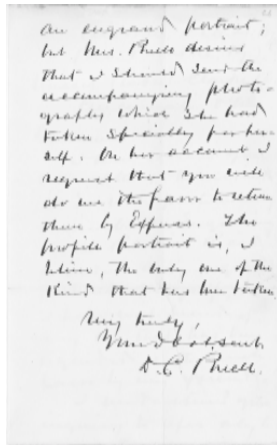 an engraved portrait;
but Mrs. Buell desires
that I should send the
accompanying photo-
graphs which she had
taken specially for her-
self. On her account I
request that you will
do me the favor to return
them by Express. The
profile portrait is, I
believe, the only one of the
Kind that has been taken
Very truly,
Your obt. servt.
D. C. Buell.